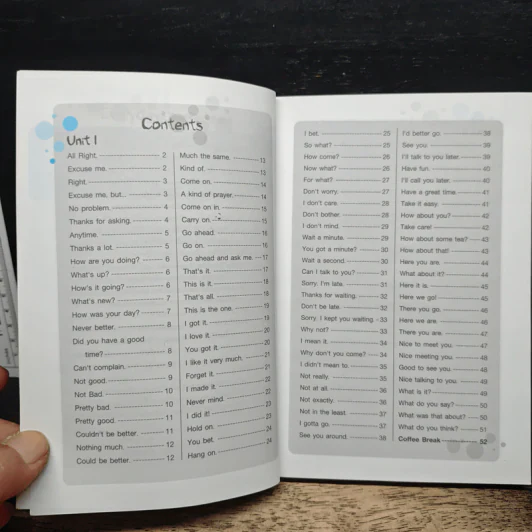 Contents
Unit 1
All Right. 2
Excuse me. 2
Right. 3
Excuse me, but... 3
No problem. 4
Thanks for asking. 4
Anytime. 5
Thanks a lot. 5
How are you doing? 6
What's up? 6
How's it going? 6
What's new? 7
How was your day? 7
Never better. 8
Did you have a good
time? 8
Can't complain. 9
Not good. 9
Not Bad. 10
Pretty bad. 10
Pretty good. 11
Couldn't be better. 11
Nothing much. 12
Could be better. 12
Much the same. 13
Kind of. 13
Come on. 14
A kind of prayer. 14
Come on in. 15
Carry on. 15
Go ahead. 16
Go on. 16
Go ahead and ask me. 17
That's it. 17
This is it. 18
That's all. 18
This is the one. 19
I got it. 19
I love it. 20
You got it. 20
I like it very much. 21
Forget it. 21
I made it. 22
Never mind. 22
I did it! 23
Hold on. 23
You bet. 24
Hang on. 24
I bet. 25
So what? 25
How come? 26
Now what? 26
For what? 27
Don't worry. 27
I don't care. 28
Don't bother. 28
I don't mind. 29
Wait a minute. 29
You got a minute? 30
Wait a second. 30
Can I talk to you? 31
Sorry, I'm late. 31
Thanks for waiting. 32
Don't be late. 32
Sorry, I kept you waiting. 33
Why not? 33
I mean it. 34
Why don't you come? 34
I didn't mean to. 35
Not really. 35
Not at all. 36
Not exactly. 36
Not in the least. 37
I gotta go. 37
See you around. 38
I'd better go. 38
See you. 39
I'll talk to you later. 39
Have fun. 40
I'll call you later. 40
Have a great time. 41
Take it easy. 41
How about you? 42
Take care! 42
How about some tea? 43
How about that! 43
Here you are. 44
What about it? 44
Here it is. 45
Here we go! 45
There you go. 46
Here we are. 46
There you are. 47
Nice to meet you. 47
Nice meeting you. 48
Good to see you. 48
Nice talking to you. 49
What is it? 49
What do you say? 50
What was that about? 50
What do you think? 51
Coffee Break 52